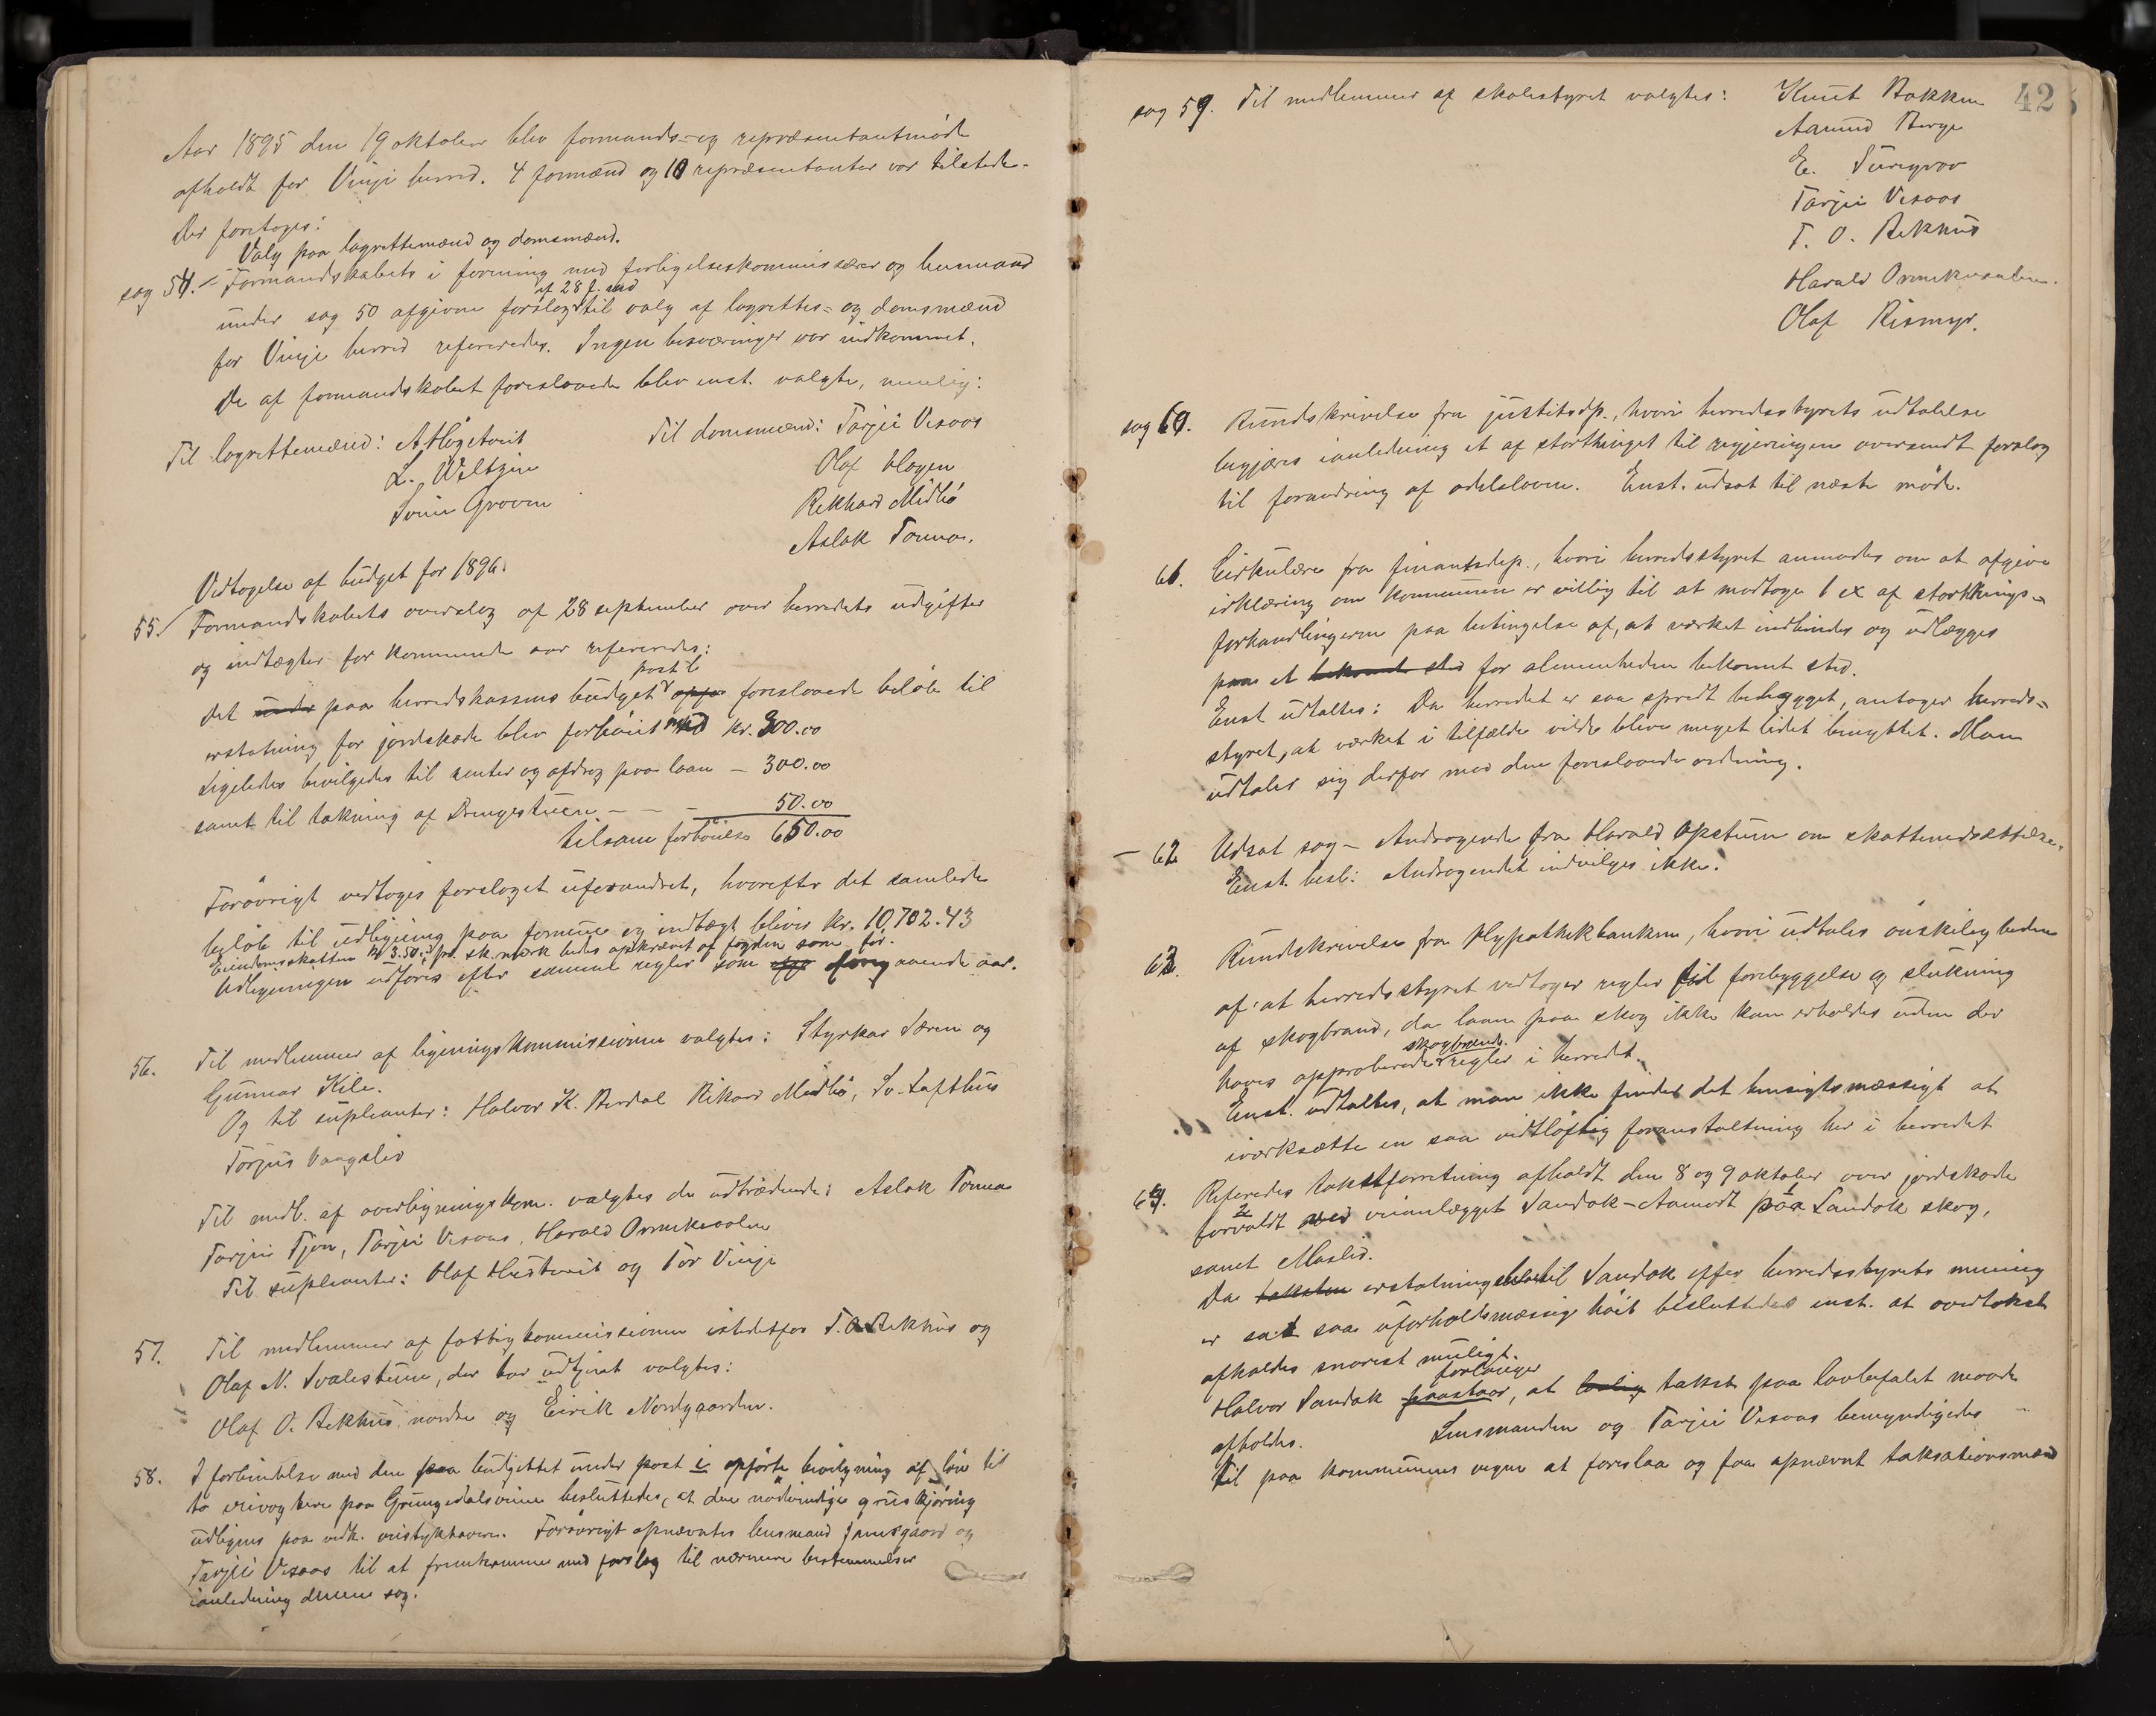 Aar 1895 den 19 oktober blev formands- og repræsentantmöde
afholdt for Vinje herred. 4 formænd og 10 repræsentanter var tilstede.
Der foretoges:
Valg paa lagrettemænd og domsmænd.
sag 54. Formandskabets i forening med forligelseskommissærer og lensmand
af 28 f. md
under sag 50 afgivne forslag til valg af lagrettes- og domsmænd
for Vinje herred refereredes. Ingen besværinger var indkommet.
De af formandskabet foreslaaede blev enst. valgte, nemlig:
Til lagrettemænd: A Högetveit
L. Weltzin
Svein Grovem
Til domsmænd: Tarjei Vesaas
Olaf Hagen
Rikhard Midbö
Aslak Tonna.
Vedtagelse af budget for 1896.
55. Formandskabets overslag af 28 september over herredets udgifter
og indtægter for kommende aar refereredes:
post l
Det under paa herredskassens budget foreslaaede belöb til
erstatning for jordskade blev forhöiet med kr. 300.00
Ligeledes bevilgedes til renter og afdrag paa laan - 300.00
samt til takning af Drengestuen - - - 50.00
tilsam. forhöielse 650.00
Foröverigt vedtoges forslaget uforandret, hvorefter det samlede
belöb til udligning paa formue og indtægt bliver kr. 10,702.43
Eiendomsskatten kr 3.50 pr. sk. mark bedes opkrævet af fogden som för.
Udligningen udföres efter samme regler som foregaaende aar.
56. Til medlemmer af ligningskommissionen valgtes: Styrkar Særen og
Gunnar Kile.
Og til supleanter: Halvor K. Berdal Rikard Midbö, Sv. Lofthus
Torjus Vaagslid
Til medl. af overligningskom. valgtes de udtrædende: Aslak Tonna
Tarjei Tjon, Tarjei Vesaas, Harald Ormekasalen
Til supleanter: Olaf Hustveit og Tor Vinje
57. Til medlemmer af fattigkommissionen istedetfor T. O. Bekhus og
Olaf N. Svalestuen, der har udtjent valgtes:
Olaf O. Bekhus nordre og Eirik Nordgaarden.
58. I forbindelse med den paa budgettet under post i opförte bevilgning af lön til
to veivogtere paa Grungedalsveien besluttedes, at den nödvendige gruskjöring
udlignes paa vedk. veistykhavere. Foröverigt opnævntes lensmand Jamsgaard og
Tarjei Vesaas til at fremkomme med forslag til nærmere bestemmelser
ianledning denne sag.
42
sag 59. Til medlemmer af skolestyret valgtes: Knut Bakken
Aamund Berge
E.
Tarjei Vesaas
T. O. Bekhus
Harald Ormekasalen.
Olaf Rismyr.
sag 60. Rundskrivelse fra justitsdp., hvori herredsstyrets udtalelse
begjæres ianledning et af storthinget til regjeringen oversendt forslag
til forandring af odelsloven. Enst. udsat til næste möde.
61. Cirkulære fra finantsdep., hvori herredsstyret anmodes om at afgive
erklæring om kommunen er villig til at modtage 1 ex af storthings-
forhandlingerne paa betingelse af, at værket indbindes og udlægges
paa et bekvemt sted for almenheden bekvemt sted.
Enst udtaltes: Da herredet er saa spredt bebygget, antager herreds-
styret, at værket i tilfælde vilde blive meget lidet benyttet. Man
udtaler sig derfor mod den foreslaaede ordning.
62 Udsat sag - Andragende fra Harald Opstuen om skattenedsættelse.
Enst. besl: Andragendet indvilges ikke.
63. Rundskrivelse fra Hypothekbanken, hvori udtales önskeligheden
af at herredsstyret vedtager regler til forebyggelse og slukning
af skogbrand, da laan paa skog ikke kan erholdes uden der
skogbrands
haves approberede regler i herredet.
Enst. udtaltes, at man ikke finder det hensigtsmæssigt at
iværksætte en saa vidtlöftig foranstaltning her i herredet
64. Referedes takstforretning afholdt den 8 og 9 oktober over jordskade
forvoldt ved veianlægget Vandok-Aamodt paa Landok skog,
samt Maslid.
Da taksten erstatningsbelöb til Vandok efter herredsstyrets mening
er sat saa uforholdsmæssig höit besluttedes enst. at overtakst
afholdes snarest muligt.
forlanger
Halvor Vandok paastaar, at lovlig takst paa lovbefalet maade
afholdes. Lensmanden og Tarjei Vesaas bemyndigedes
til paa kommunens vegne at foreslaa og faa opnævnt taksationsmænd